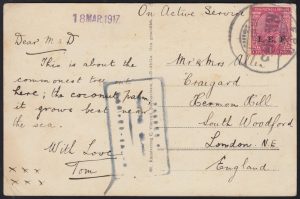 18 MAR. 1917
On Active Service
Dear M & D
This is about the
commonest tree out
here; the coconut palm,
it grows best near
the sea.
With Love
Tom
x x x x
x x x
Mr & Mrs A
Craigard
Hermon Hill
South Woodford
London. N.E.
England
I. E. F.